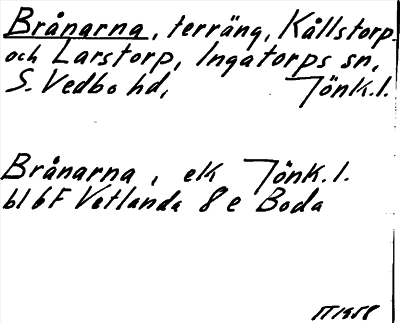 Brånarna, terräng, Kållstorp
och Larstorp, Ingatorps sn,
S. Vedbo hd, Jönk.l.
Brånarna, elk Jönk.l.
bl 6F Vetlanda 8 e Boda